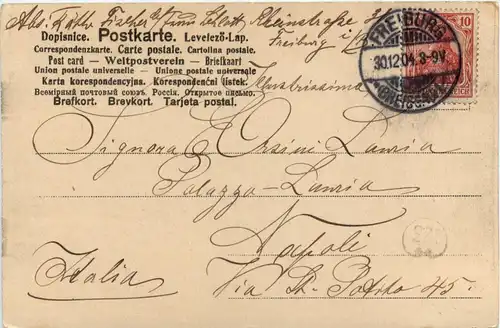 Abs. Käthe Fischer Rheinstraße
Freiburg i/
Dopisnice. Postkarte. Levelező-Lap.
Correspondenzkarte. Carte postale. Cartolina postale.
Post card — Weltpostverein — Briefkaart
Union postale universelle — Unione postale universale
Karta korespondencyjna. Korespondenční lístek.
Всемірный почтовый союзъ. Россія. Открытое письмо.
Brefkort. Brevkort. Tarjeta postal.
FREIBURG
30.12.04. 8-9V.
(BREISGAU)
10
REICH
Illustrissima
Signora E Orsini Lauria
Palazzo Lauria
Napoli
Italia
Via 45.